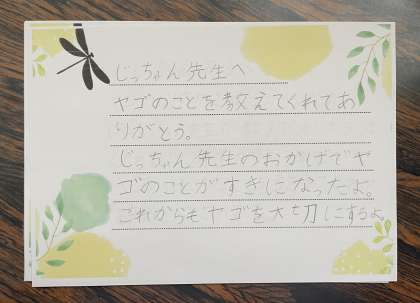 じっちゃん先生へ
ヤゴのことを教えてくれてあ
りがとう。
じっちゃん先生のおかげでヤ
ゴのことがすきになったよ。
これからもヤゴを大切にするよ